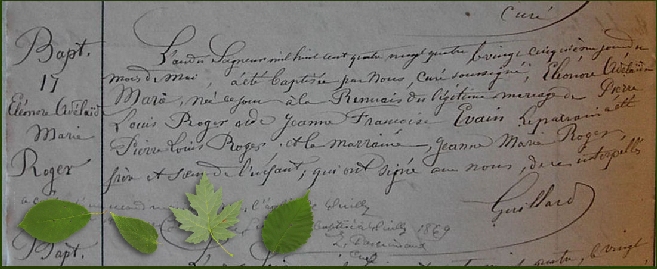 Curé
Bapt.
17
Eléonore Adélaïde
Marie
Roger
L'an du Seigneur mil huit cent quatre vingt quatre le vingt cinquième jour du
mois de Mai, a été baptisée par Nous, Curé soussigné, Eléonore Adélaïde
Marie, née ce jour à la Renuais du légitime mariage de Pierre
Louis Roger et de Jeanne Françoise Evain. Le parrain a été
Pierre Louis Roger, et la marraine, Jeanne Marie Roger,
frère et sœur de l'enfant, qui ont signé avec nous, de ce interpellés
Guillard
1869
Bapt.